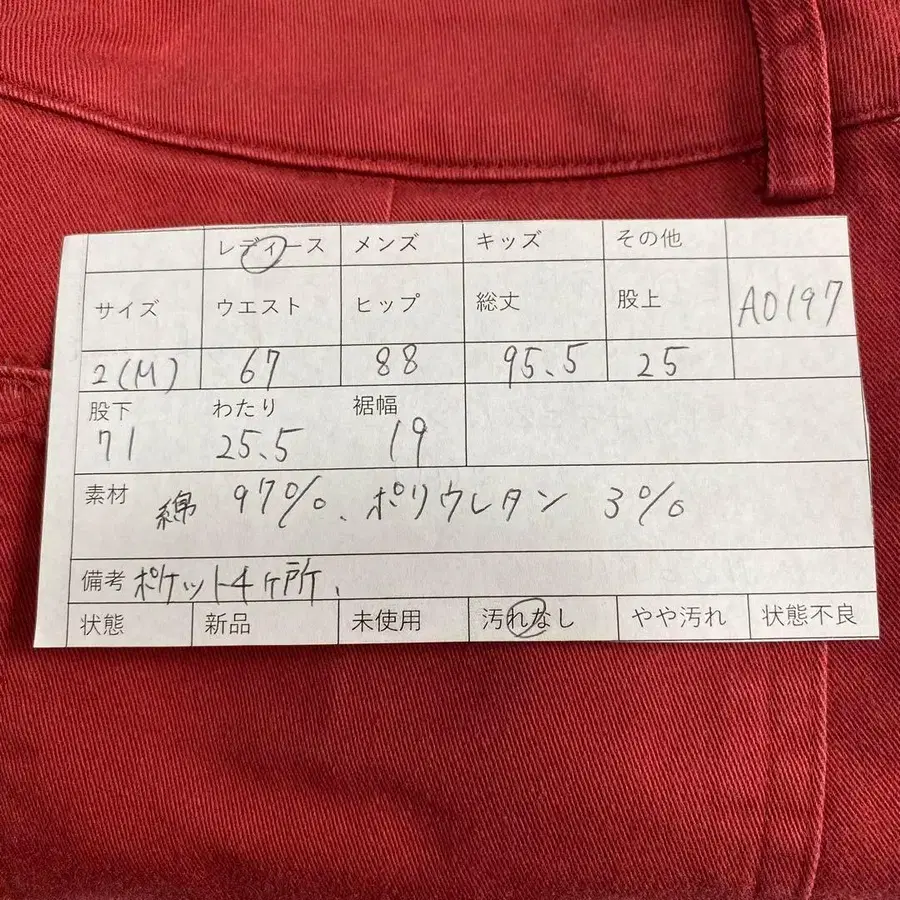 レディース メンズ キッズ その他
サイズ ウエスト ヒップ 総丈 股上 A0197
2(M) 67 88 95.5 25
股下 わたり 裾幅
71 25.5 19
素材 綿 97%、ポリウレタン 3%
備考 ポケット4ヶ所、
状態 新品 未使用 汚れなし やや汚れ 状態不良